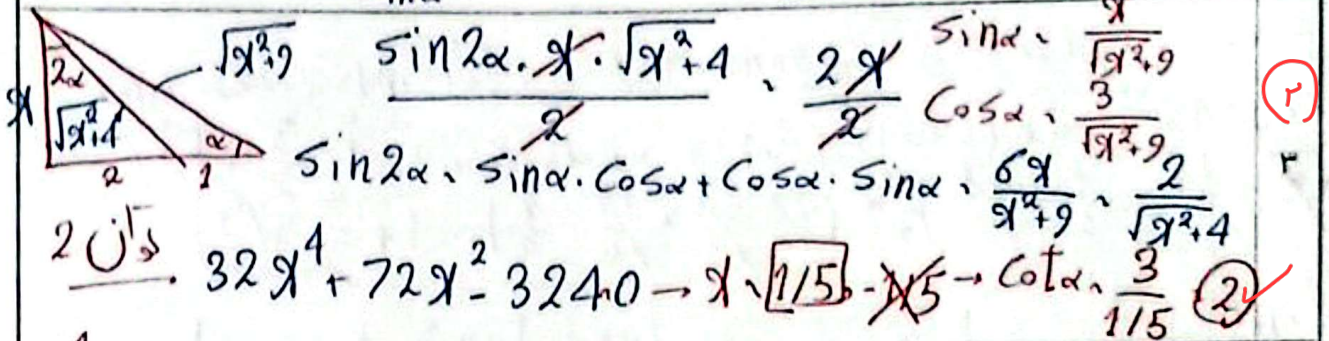 x 2α √x²+4 α 2 1 √x²+9
sin2α.x.√x²+4 / 2 = 2x / 2
sinα = x / √x²+9
cosα = 3 / √x²+9
sin2α = sinα.cosα + cosα.sinα = 6x / x²+9 = 2 / √x²+4
توان 2
32x⁴ + 72x² - 324 = 0 → x = 1/5, -1/5 → cotα = 3 / 1/5 = 2
۲
۳